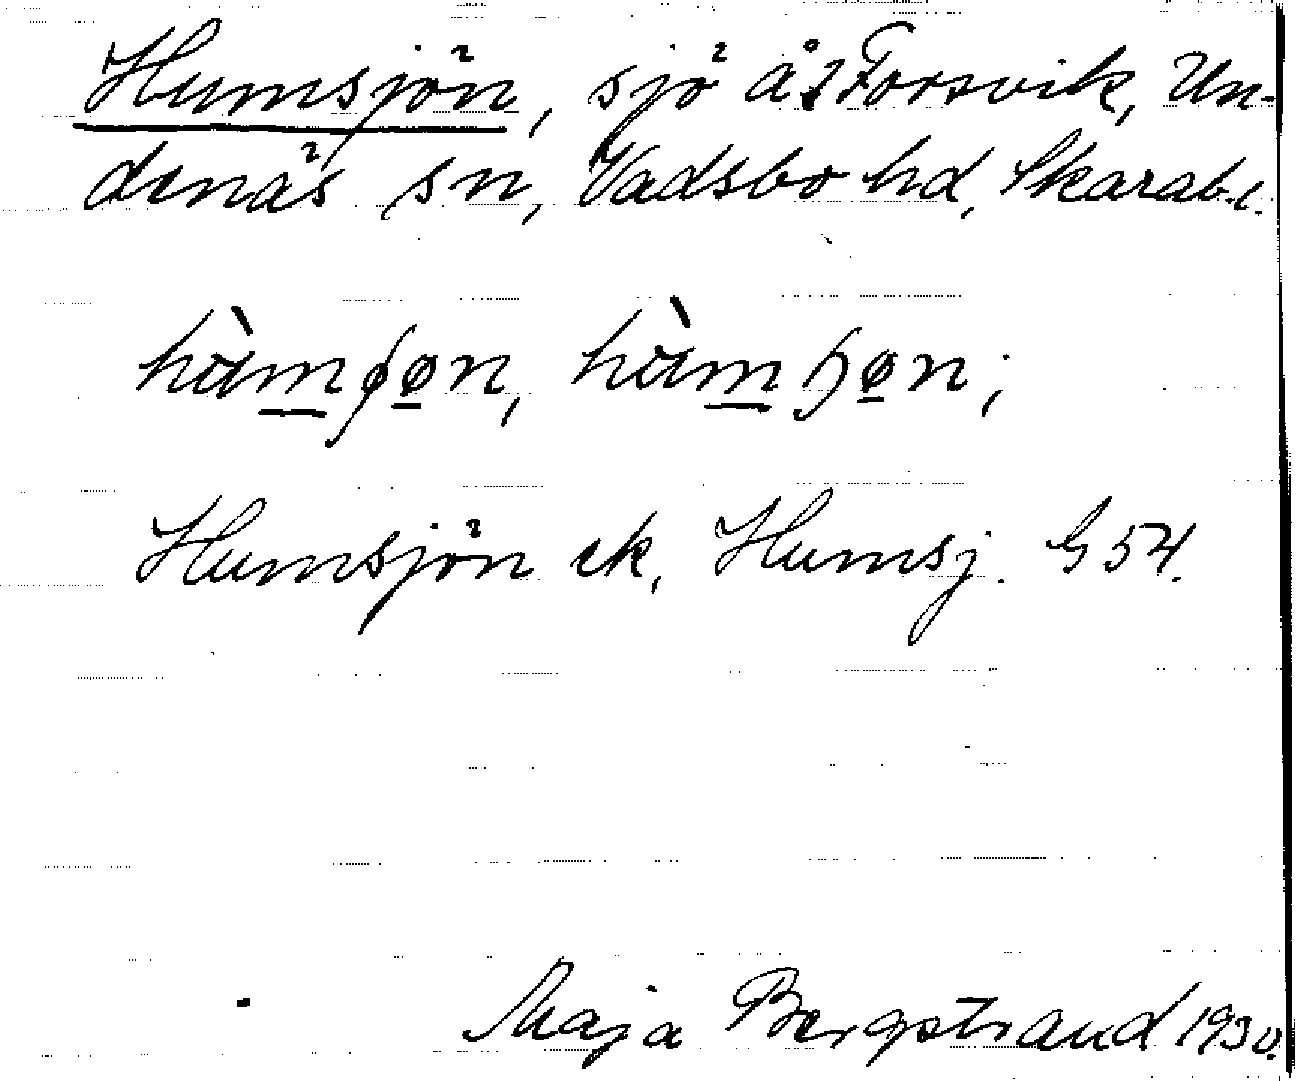 Humsjön, sjö å Forsvik, Un-
denäs sn, Vadsbo hd, Skarab. l.
Humsjön ek, Humsj. G 54.
Maja Bergstrand 1930.